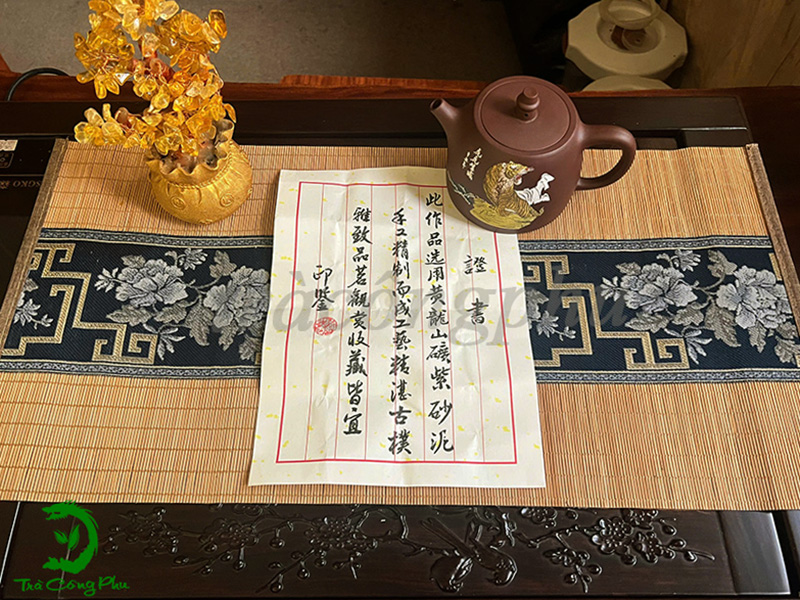 證書
此作品选用黄龍山礦紫砂泥
手工精制而成工藝精湛古樸
雅致品茗觀赏收藏皆宜
印鑒
Trà Công Phu